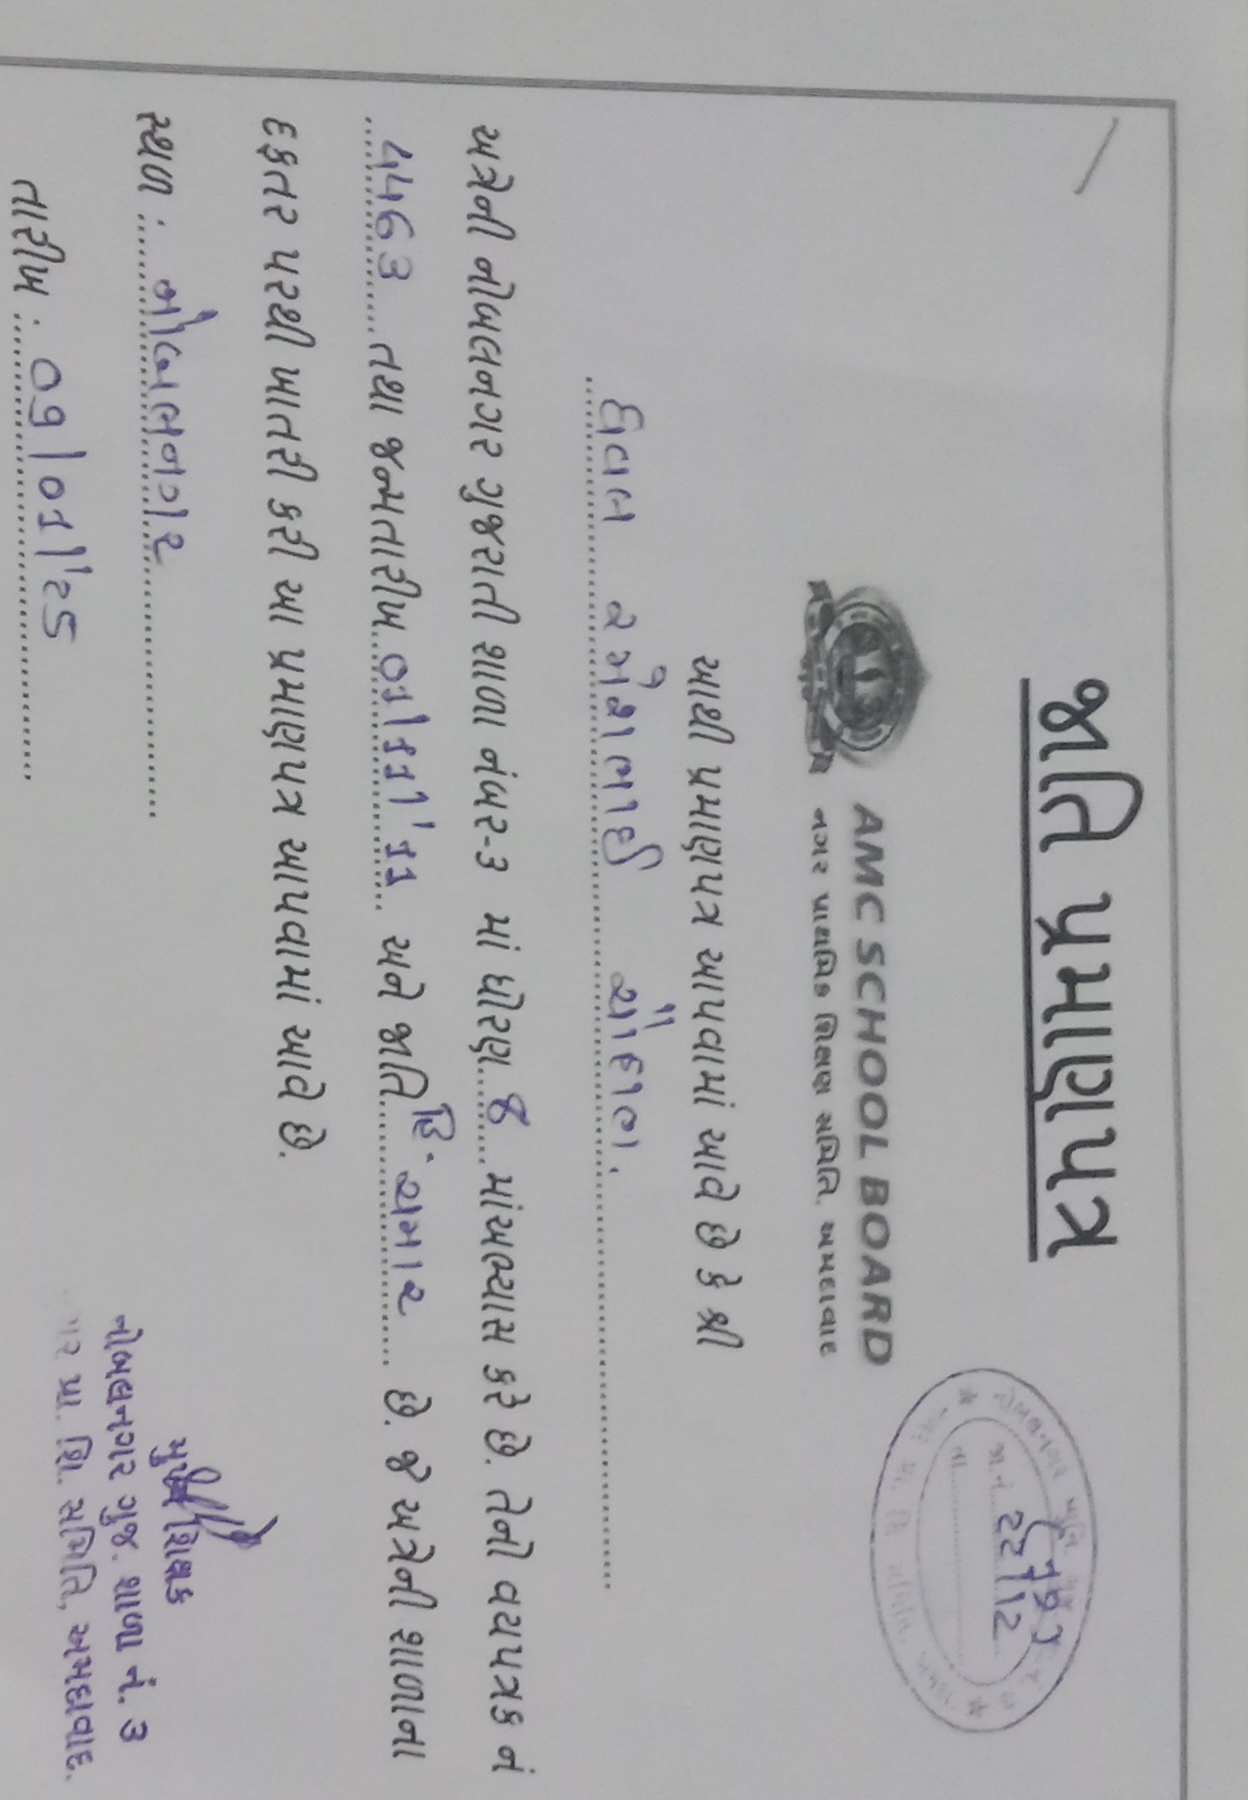 જાતિ પ્રમાણપત્ર
AMC SCHOOL BOARD
નગર પ્રાથમિક શિક્ષણ સમિતિ, અમદાવાદ
જા.નં.
22/12
તા.
આથી પ્રમાણપત્ર આપવામાં આવે છે કે શ્રી
ધવલ રમેશભાઈ ચૌહાણ.
અત્રેની નોબલનગર ગુજરાતી શાળા નંબર-૩ માં ધોરણ ૪ માંઅભ્યાસ કરે છે. તેનો વયપત્રક નં
૫૫૬૩ તથા જન્મતારીખ અને જાતિ હિં. ચમાર છે. જે અત્રેની શાળાના
દફતર પરથી ખાતરી કરી આ પ્રમાણપત્ર આપવામાં આવે છે.
સ્થળ : નોબલનગર
તારીખ :
મુખ્ય શિક્ષક
નોબલનગર ગુજ. શાળા નં. ૩
નગર પ્રા. શિ. સમિતિ, અમદાવાદ.